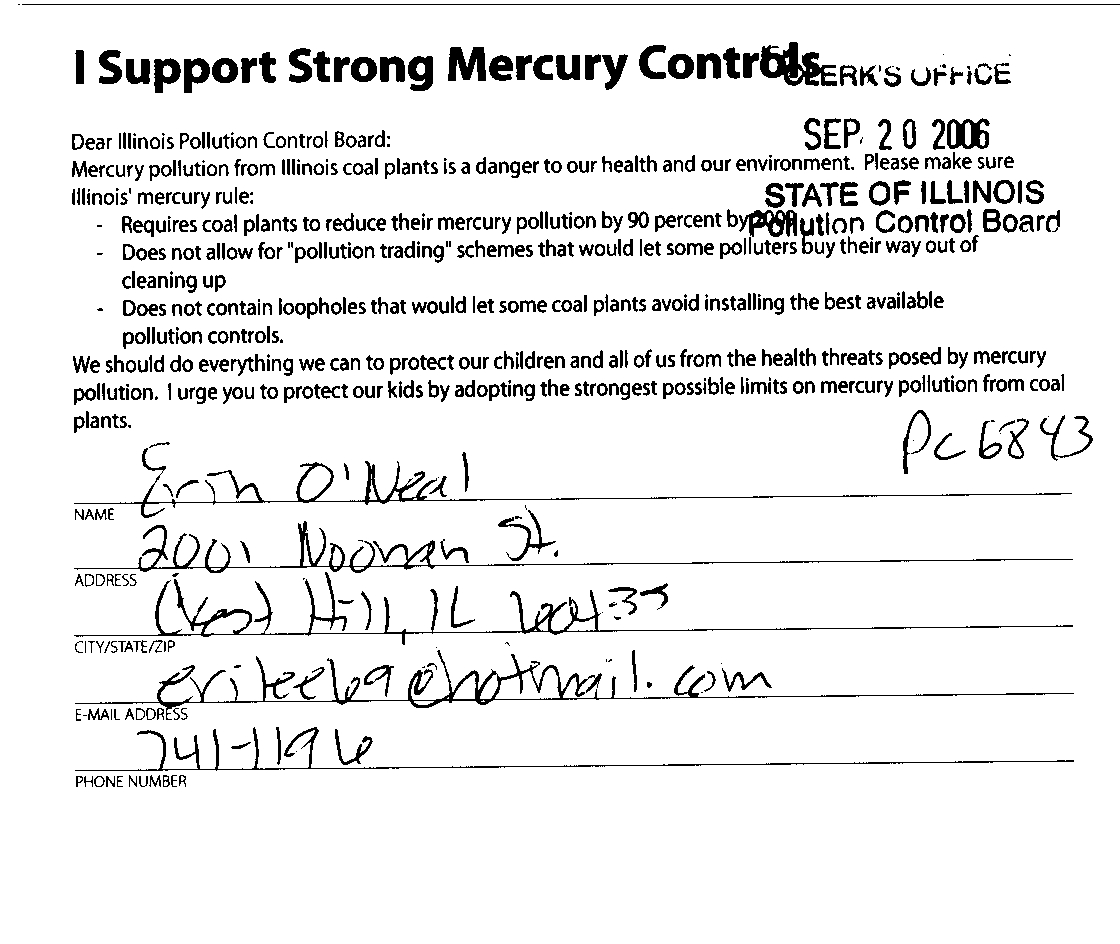 I Support Strong Mercury Controls
CLERK'S OFFICE
Dear Illinois Pollution Control Board:
SEP. 20 2006
Mercury pollution from Illinois coal plants is a danger to our health and our environment. Please make sure
Illinois' mercury rule:
STATE OF ILLINOIS
- Requires coal plants to reduce their mercury pollution by 90 percent by 2009
Pollution Control Board
- Does not allow for "pollution trading" schemes that would let some polluters buy their way out of
cleaning up
- Does not contain loopholes that would let some coal plants avoid installing the best available
pollution controls.
We should do everything we can to protect our children and all of us from the health threats posed by mercury
pollution. I urge you to protect our kids by adopting the strongest possible limits on mercury pollution from coal
plants.
PC 6843
Erin O'Neal
NAME
2001 Noonan St.
ADDRESS
Crest Hill, IL 60435
CITY/STATE/ZIP
@hotmail.com
E-MAIL ADDRESS
741-1196
PHONE NUMBER